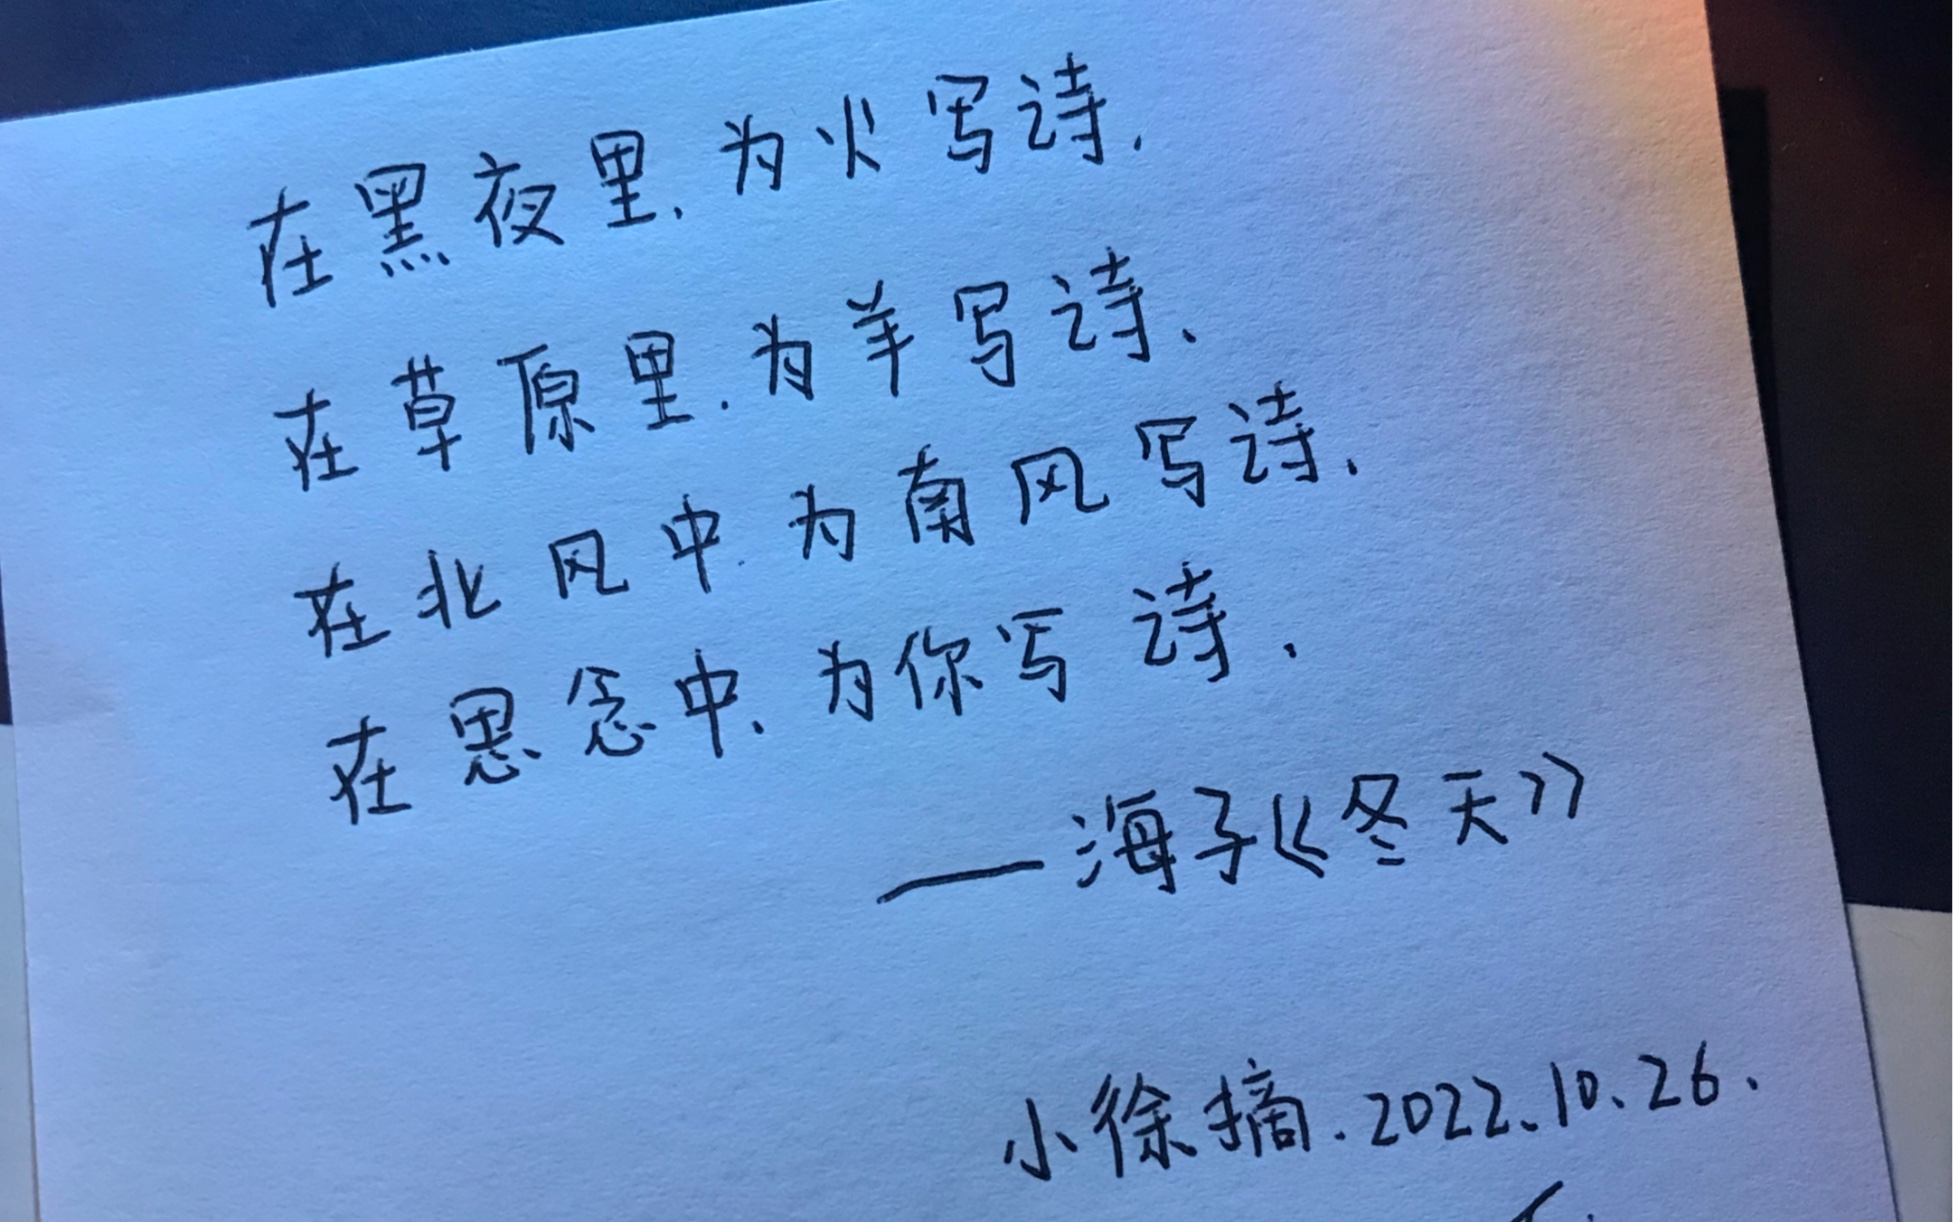 在黑夜里.为火写诗.
在草原里.为羊写诗、
在北风中.为南风写诗.
在思念中.为你写诗.
—海子《冬天》
小徐摘.2022.10.26.